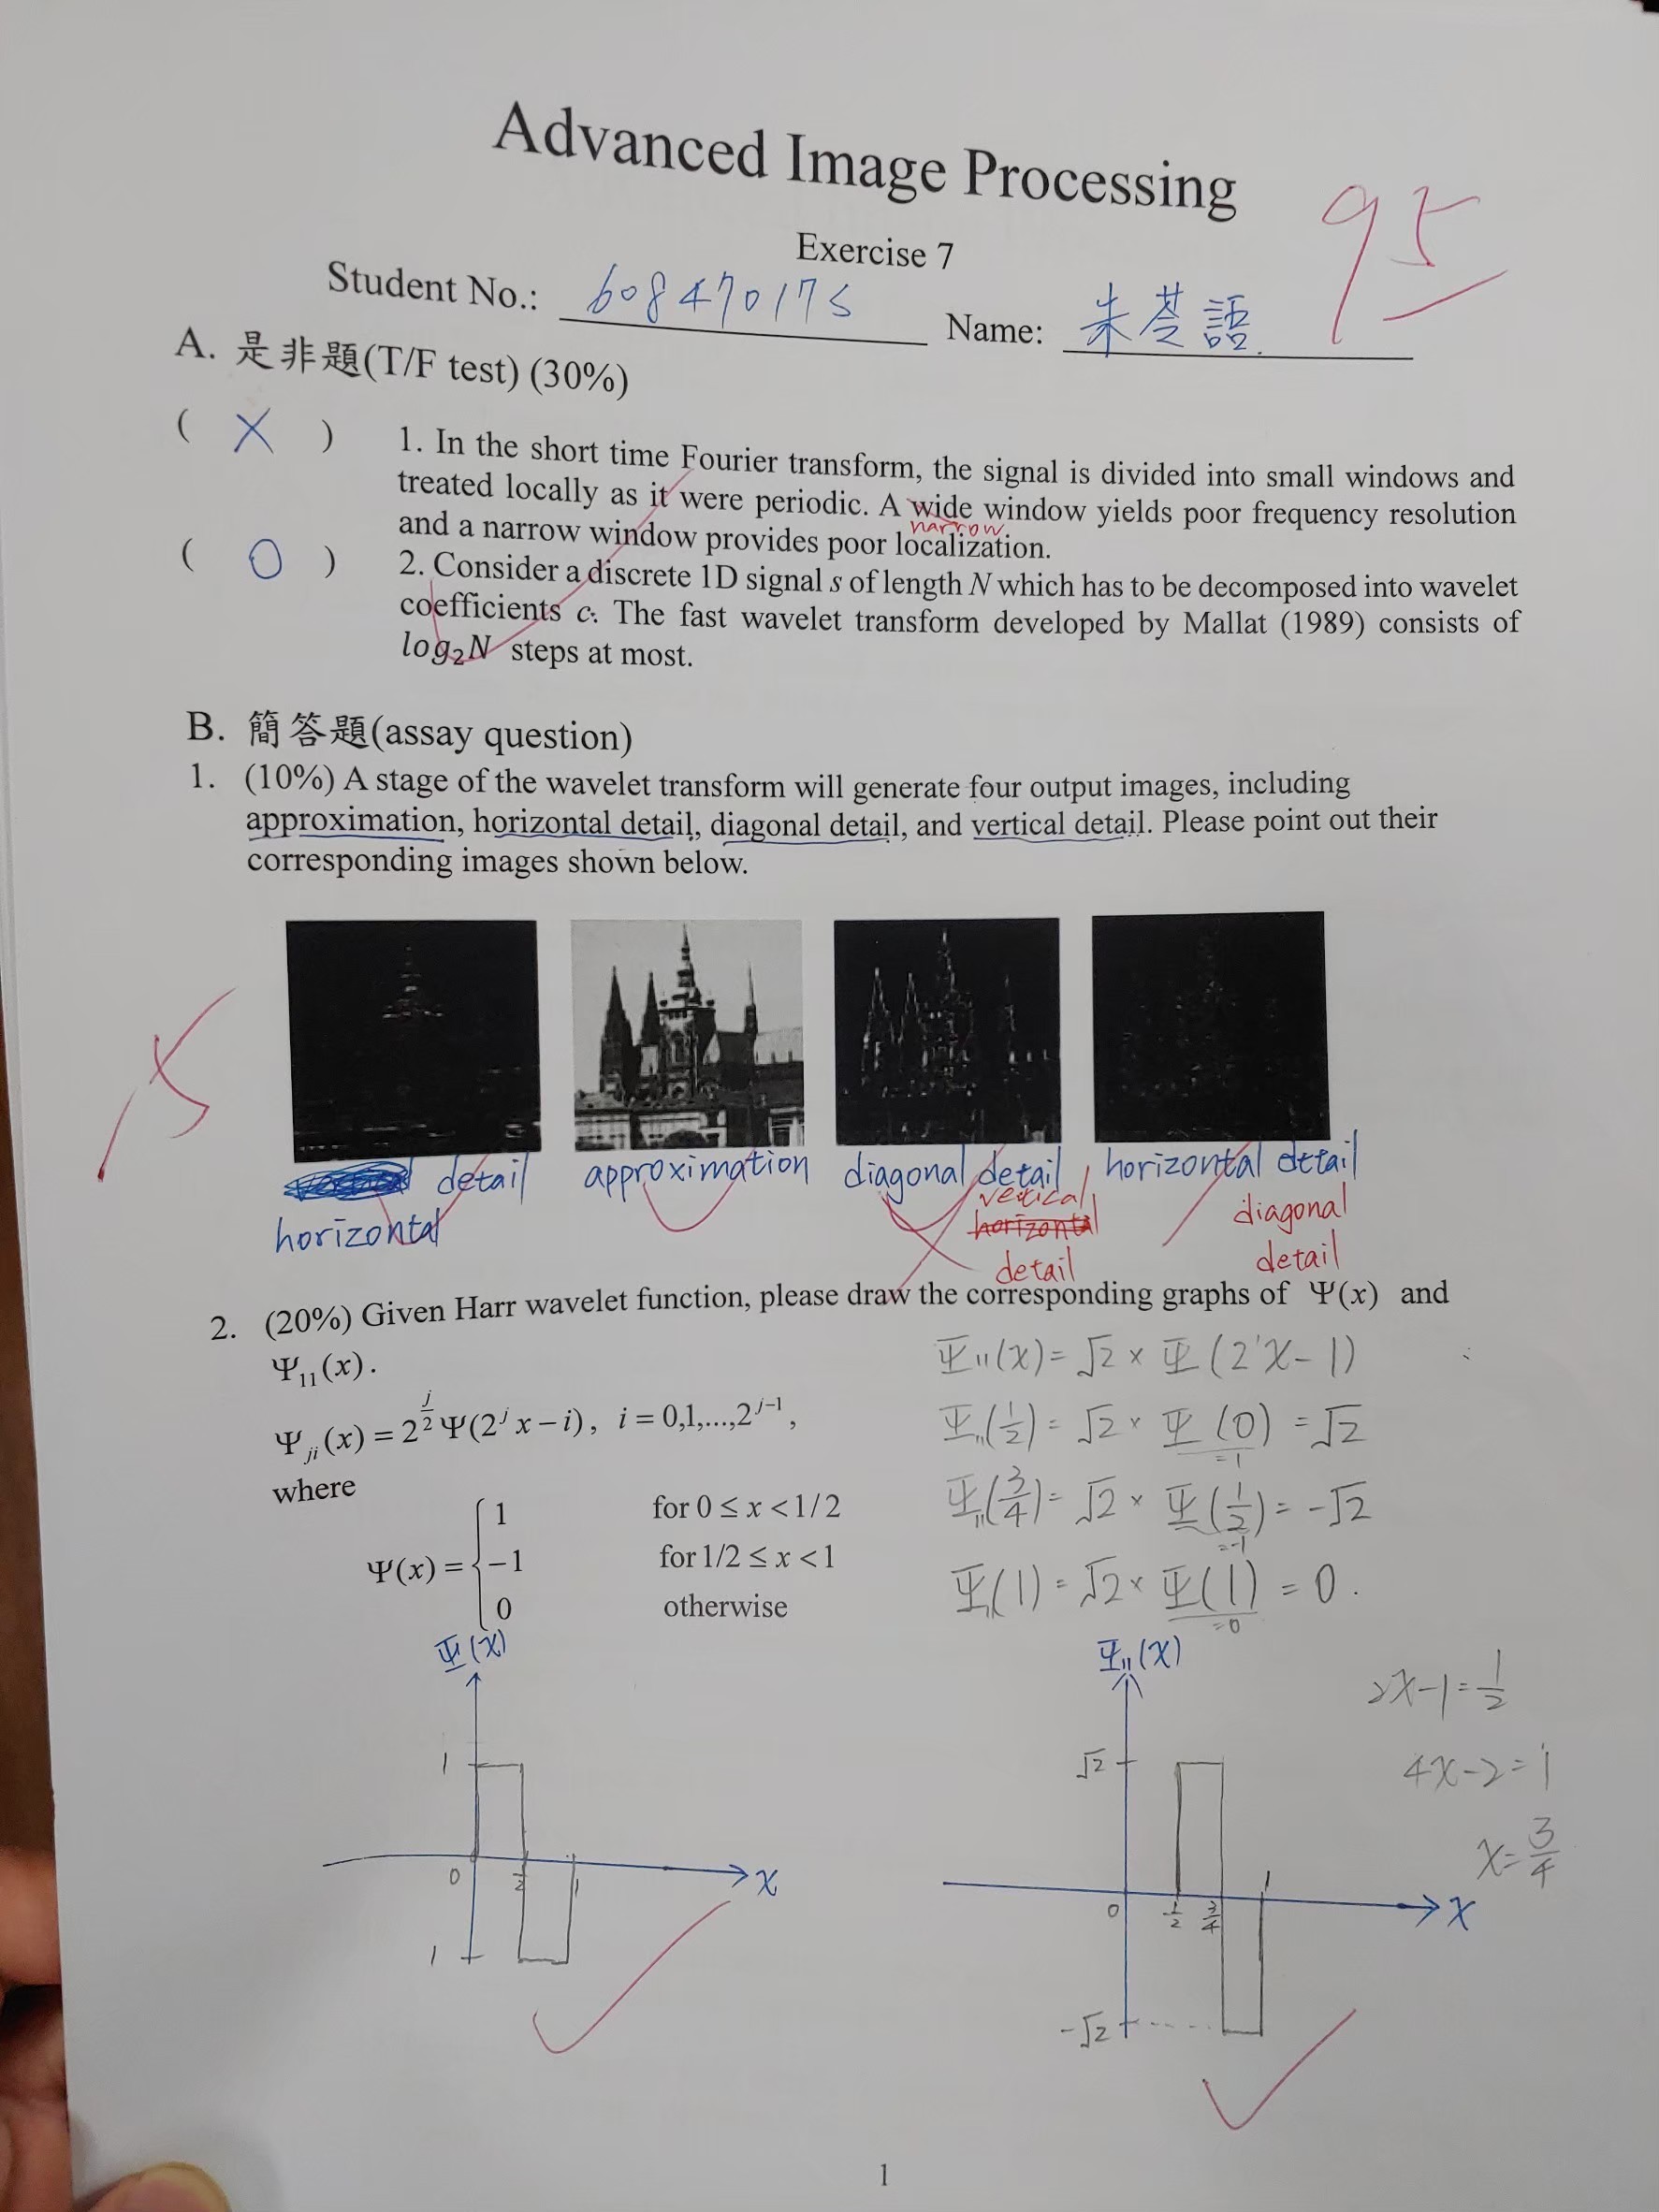 Advanced Image Processing
95
Exercise 7
Student No.: 60847017S Name: 朱苙語
A. 是非題(T/F test) (30%)
( X ) 1. In the short time Fourier transform, the signal is divided into small windows and
treated locally as it were periodic. A wide window yields poor frequency resolution
narrow
and a narrow window provides poor localization.
( O ) 2. Consider a discrete 1D signal s of length N which has to be decomposed into wavelet
coefficients c. The fast wavelet transform developed by Mallat (1989) consists of
log₂N steps at most.
B. 簡答題(assay question)
1. (10%) A stage of the wavelet transform will generate four output images, including
approximation, horizontal detail, diagonal detail, and vertical detail. Please point out their
corresponding images shown below.
detail approximation diagonal detail horizontal detail
horizontal
vertical
horizontal
detail
diagonal
detail
2. (20%) Given Harr wavelet function, please draw the corresponding graphs of Ψ(x) and
Ψ₁₁(x).
Ψ_{ji}(x) = 2^{j/2} Ψ(2^j x − i), i = 0,1,...,2^{j−1},
where
Ψ(x) = { 1 for 0 ≤ x < 1/2
−1 for 1/2 ≤ x < 1
0 otherwise
Ψ₁₁(x) = √2 × Ψ(2¹x − 1)
Ψ₁₁(1/2) = √2 × Ψ(0) = √2
=1
Ψ₁₁(3/4) = √2 × Ψ(1/2) = −√2
=-1
Ψ₁₁(1) = √2 × Ψ(1) = 0.
=0
Ψ(x)
1
0 1/2 1 x
1
Ψ₁₁(x)
√2
0 1/2 3/4 1 x
−√2
2x−1 = 1/2
4x−2 = 1
x = 3/4
1